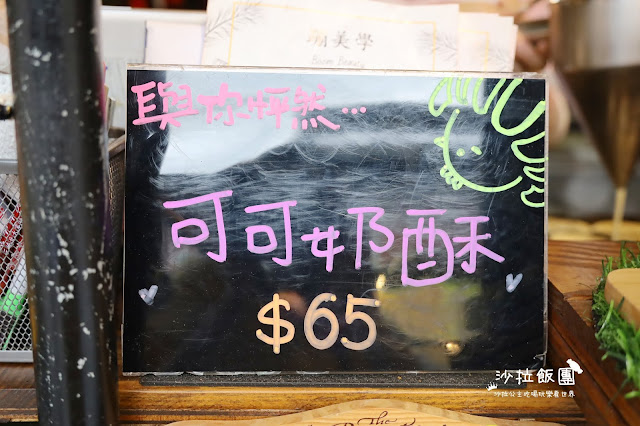 潮美學
Boom Beauty
與你怦然...
可可奶酥
$65
沙拉飯團
沙拉公主吃喝玩樂看世界
The